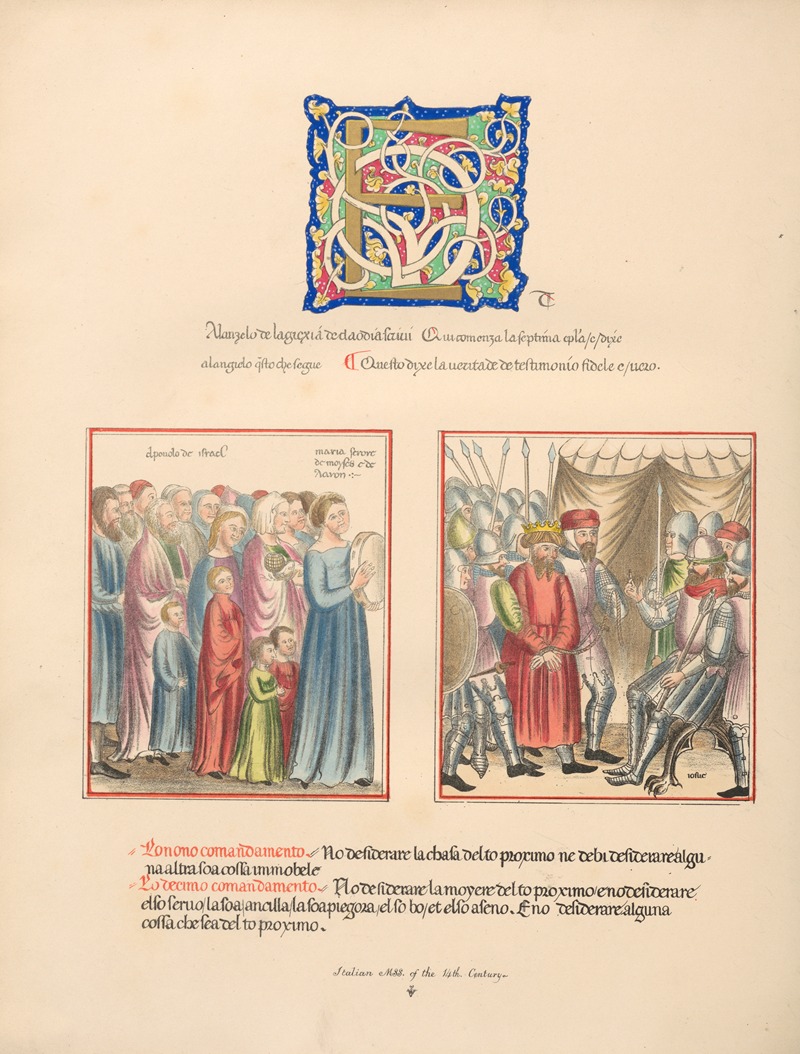 Alanzelo de la giexiā de claodia scriui Qui comenza la septima epl'a/e/dixe
alangielo q̄sto che segue Questo dixe la ueritade de testimonio fidele e/uero.
el pouolo de israel
maria serore
de moyses e de
Aaron
iosue
Lo nono comandamento No desiderare la chasa del to proximo ne debi desiderare algu
na altra soa cossa immobele
Lo decimo comandamento No desiderare la moyere del to proximo/e no desiderare
el so seruo/la soa ancilla/la soa piegora/el so bo/et el so aseno. E no desiderare alguna
cossa che sea del to proximo.
Italian MSS. of the 14th. Century.